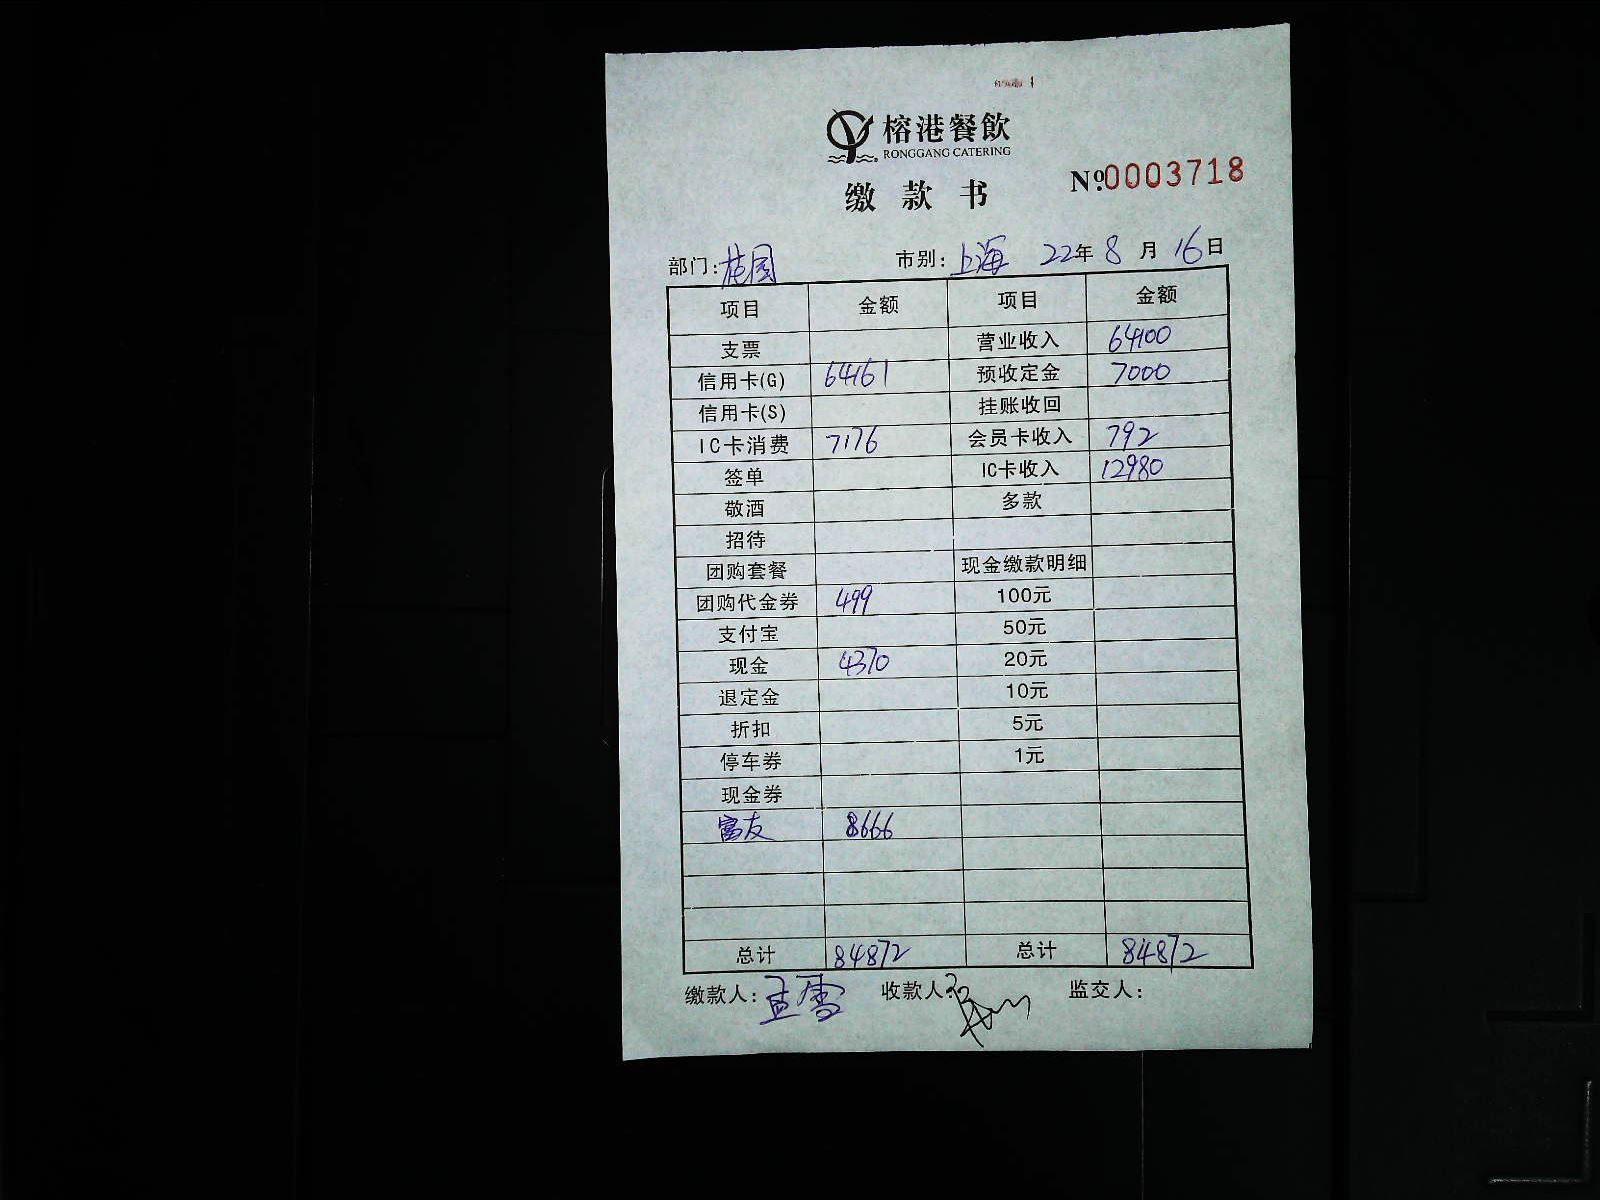 榕港餐飲
RONGGANG CATERING
缴款书
№0003718
部门:桂园 市别:上海 22年8月16日
项目 金额 项目 金额
支票 营业收入 64100
信用卡(G) 64161 预收定金 7000
信用卡(S) 挂账收回
IC卡消费 7176 会员卡收入 792
签单 IC卡收入 12980
敬酒 多款
招待
团购套餐 现金缴款明细
团购代金券 499 100元
支付宝 50元
现金 4370 20元
退定金 10元
折扣 5元
停车券 1元
现金券
富友 8666
总计 84872 总计 84872
缴款人:孟雪 收款人: 监交人: